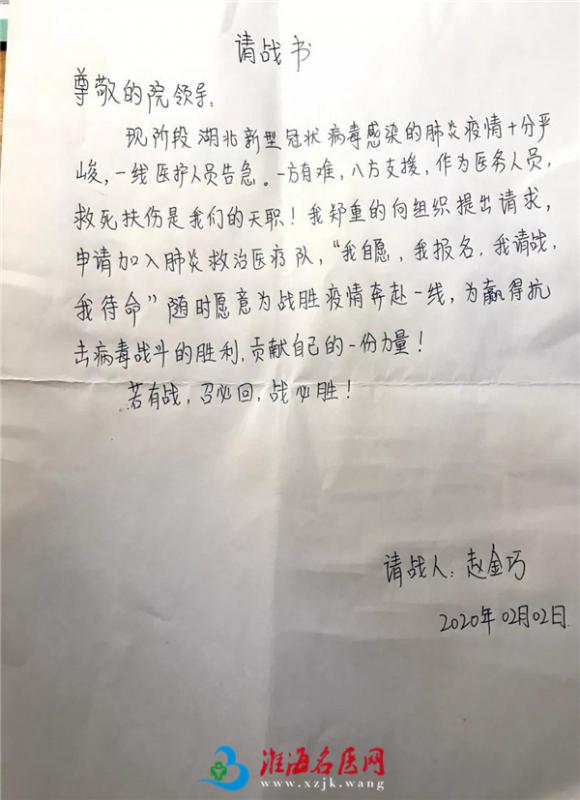 请战书
尊敬的院领导：
现阶段湖北新型冠状病毒感染的肺炎疫情十分严
峻，一线医护人员告急。一方有难，八方支援，作为医务人员，
救死扶伤是我们的天职！我郑重的向组织提出请求，
申请加入肺炎救治医疗队，“我自愿，我报名，我请战，
我待命”随时愿意为战胜疫情奔赴一线，为赢得抗
击病毒战斗的胜利，贡献自己的一份力量！
若有战，召必回，战必胜！
请战人：赵金巧
2020年02月02日
淮海名医网
www.xzjk.wang